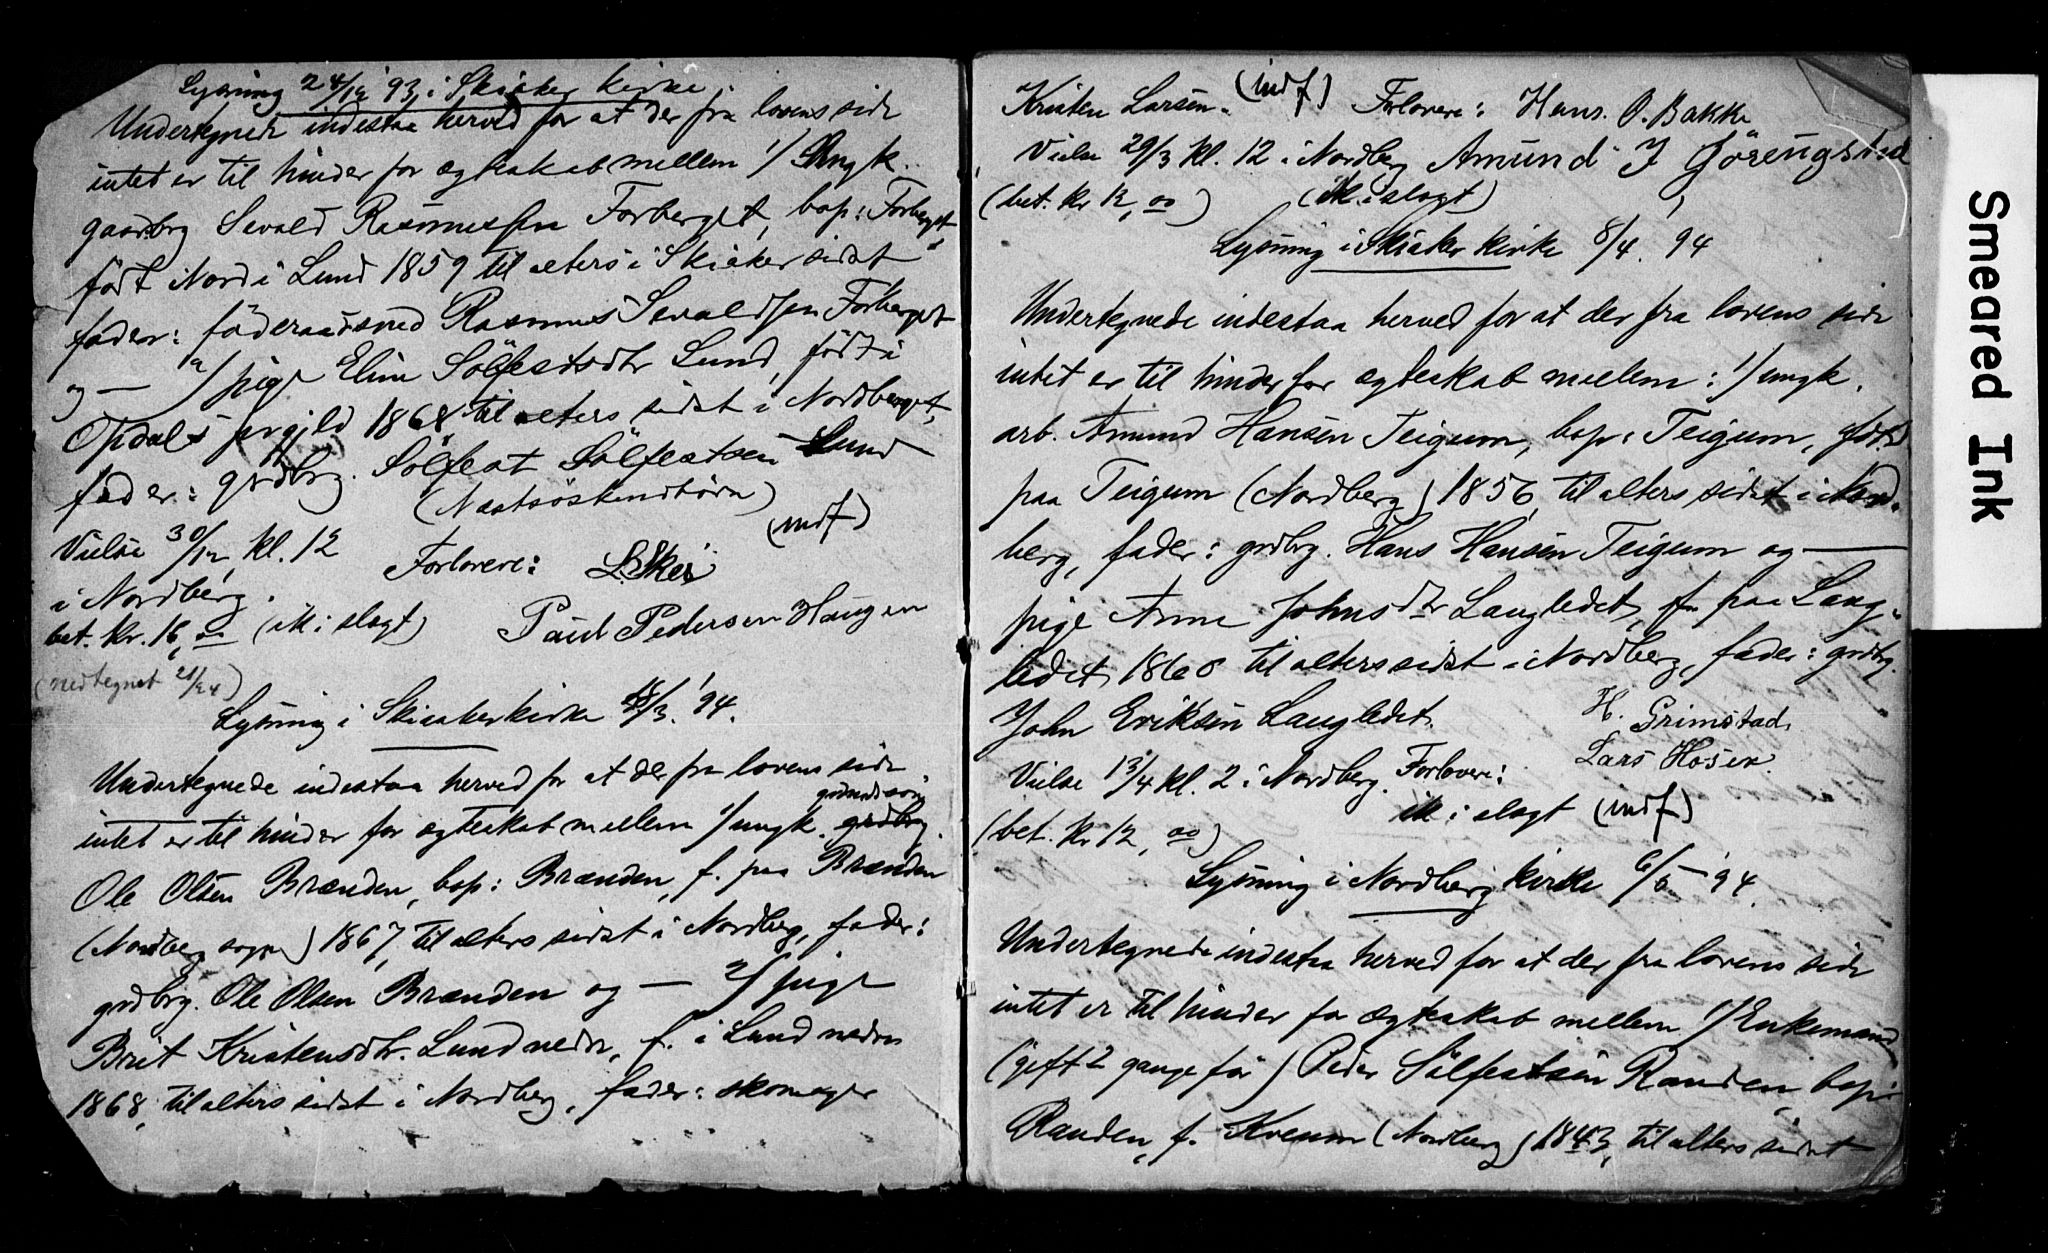 Lysning 24/12 93 i Skiaker kirke
Undertegnede indestaa herved for at der fra lovens side
intet er til hinder for ægteskab mellem 1/ Ungk.
gaardbrg Sevald Rasmussen Forberget, bop: Forberget,
født Nord i Lund 1859 til alters i Skiaker sidst
fader: föderaadsmd Rasmus Sevaldssen Forberget
og — 2/ pige Eline Sölfestsdtr Lund, født i
Opdals prgjld 1868 til alters sidst i Nordberget,
fader: grdbrg. Sölfest Sölfestsen Lund
(Næstsöskendebörn)
(indf)
Vielse 30/12 kl. 12
i Nordberg.
Forlovere: L. Skei
bet. kr. 16,00 (ik i slegt) Paul Pedersen Haugen
(nedtegnet 21/24)
Lysning i Skiaker kirke /3. '94.
Undertegnede indestaa herved for at der fra lovens side
intet er til hinder for ægteskab mellem 1/ ungk. grdbrg.
Ole Olsen Brænden, bop: Brænden, f. paa Brænden
(Nordberg sogn) 1867, til alters sidst i Nordberg, fader:
grdbrg. Ole Olsen Brænden og — 2/ pige
Brit Kristensdtr. Lund nedre, f. i Lund nedre
1868, til alters sidst i Nordberg, fader: skomager
Kristen Larsen. (indf) Forlovere: Hans. O. Bakke
Vielse 29/3 kl. 12 i Nordberg Amund J Görengstad
(bet. kr 12,00) (ik. i slegt)
Lysning i Skiaker kirke 8/4. 94
Undertegnede indestaa herved for at der fra lovens side
intet er til hinder for ægteskab mellem: 1/ ungk.
arb. Amund Hansen Teigum, bop: Teigum, født
paa Teigum (Nordberg) 1856, til alters sidst i Nord-
berg, fader: grdbrg. Hans Hansen Teigum og —
pige Anne Johnsdtr Laugledet, f. paa Laug-
ledet 1868 til alters sidst i Nordberg, fader: grdbrg.
John Eriksen Laugledet.
H. Grimstad
Lars Hosen.
Vielse 13/4 kl. 2 i Nordberg. Forlovere:
ik i slegt (indf)
(bet. kr 12,00)
Lysning i Nordberg kirke 6/5 '94.
Undertegnede indestaa herved for at der fra lovens side
intet er til hinder for ægteskab mellem 1/ Enkemand
(gift 2 gange før) Peder Sölfestsen Randen, bop:
Randen, f. Kveum (Nordberg) 1843, til alters sidst
Smeared Ink